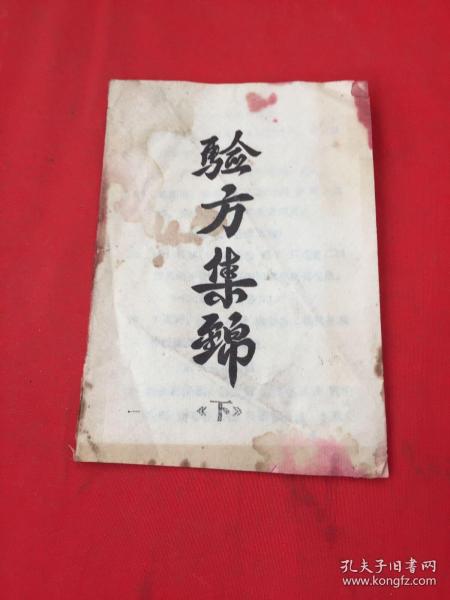 验方集锦
《下》
孔夫子旧书网
www.kongfz.com